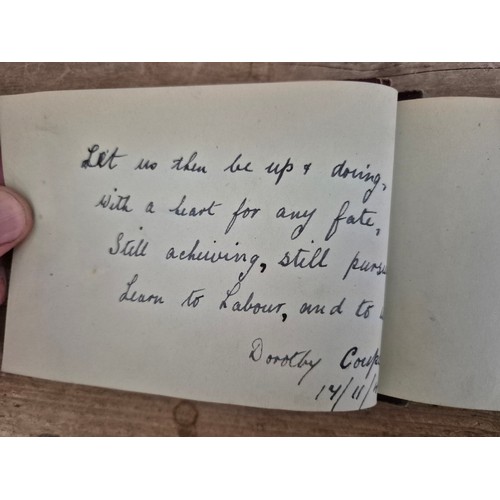 Let us then be up & doing,
With a heart for any fate,
Still acheiving, still purs
Learn to Labour, and to
Dorothy Coup
14/11/